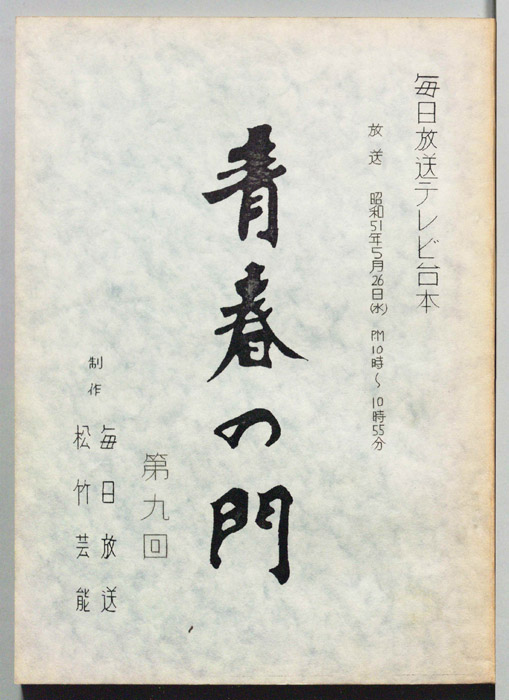 毎日放送テレビ台本
放送 昭和51年5月26日(水) PM10時〜10時55分
青春の門
第九回
制作 毎日放送
松竹芸能